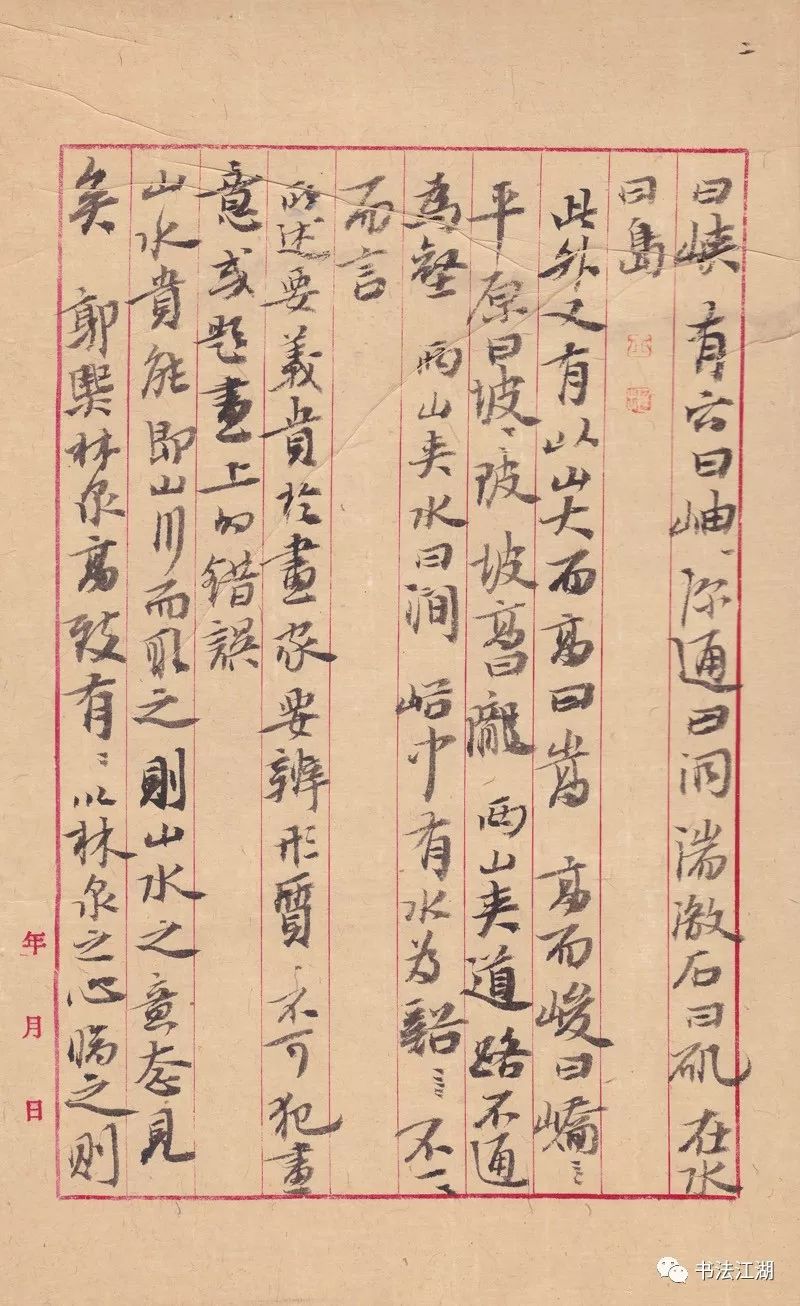 二
曰峽 有穴曰岫、深通曰洞 湍激石曰矶 在水
曰島
此外又有以山大而高曰嵩 高而峻曰嶠
平原曰坡、陂 坡高曰隴 两山夹道路不通
為壑 两山夹水曰澗 峪中有水为谿 不一
而言
所述要義貴於畫家要辨形質、不可犯畫
意或题畫上的錯誤
山水貴能即山川而取之則山水之意态見
矣 郭熙林泉高致有：以林泉之心临之則
年 月 日
书法江湖